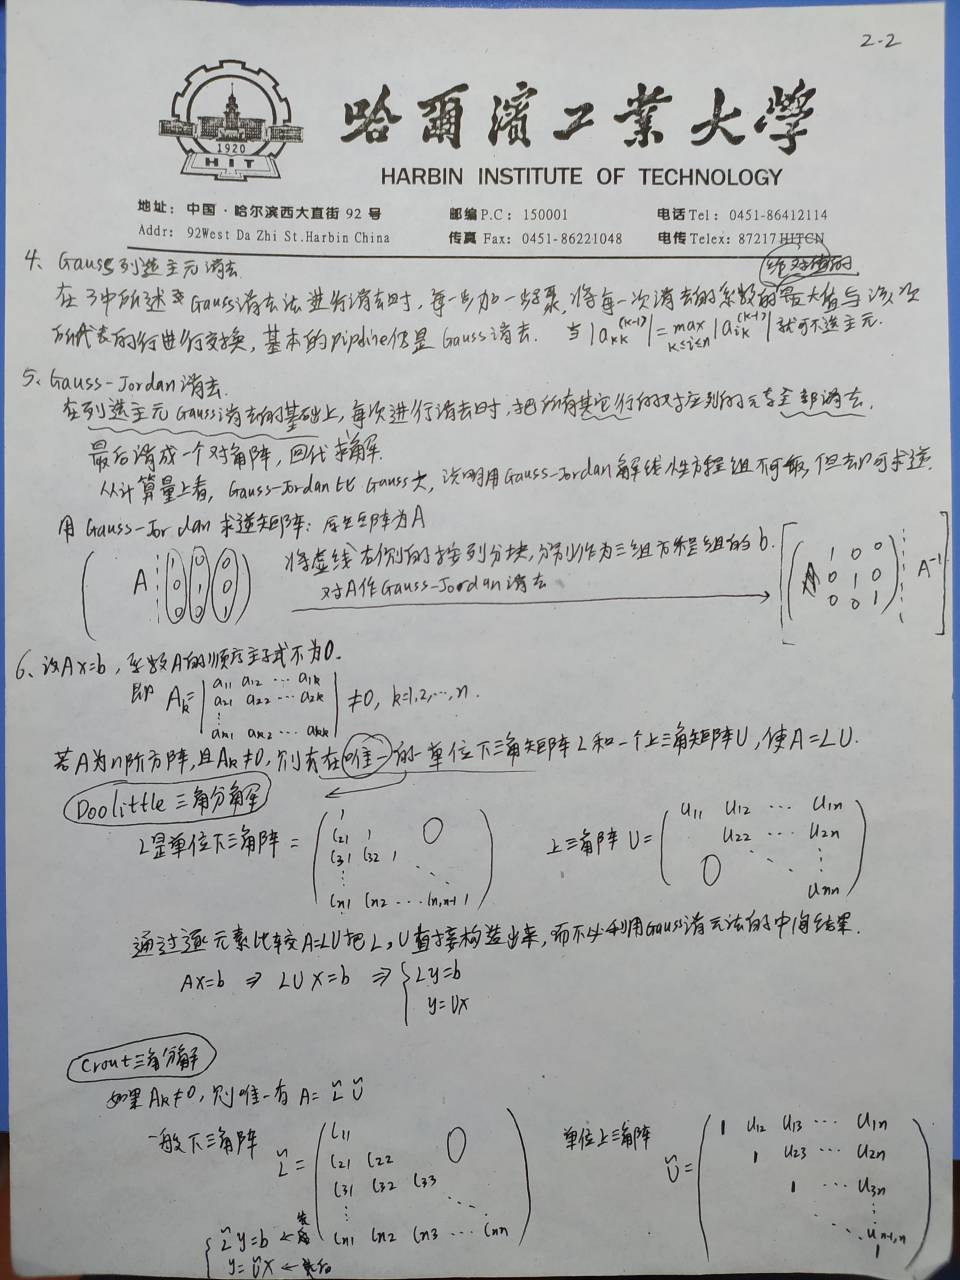 2-2
1920
HIT
哈爾濱工業大學
HARBIN INSTITUTE OF TECHNOLOGY
地址: 中国·哈尔滨西大直街 92 号 邮编 P.C: 150001 电话 Tel: 0451-86412114
Addr: 92West Da Zhi St.Harbin China 传真 Fax: 0451-86221048 电传 Telex: 87217 HITCN
4、Gauss列选主元消去.
绝对值的
在3中所述 Gauss消去法进行消去时, 每一步加一步骤, 将每一次消去的系数的最大值与该次
所代表的行进行交换, 基本的pipeline仍是Gauss消去. 当 |a_{kk}^{(k-1)}| = max_{k≤i≤n} |a_{ik}^{(k-1)}| 就可不选主元.
5、Gauss-Jordan消去.
在列选主元Gauss消去的基础上, 每次进行消去时, 把所有其它行的对应列的元素全部消去,
最后消成一个对角阵, 回代求解.
从计算量上看, Gauss-Jordan比Gauss大, 说明用Gauss-Jordan解线性方程组不可取, 但却可求逆.
用Gauss-Jordan求逆矩阵: 原矩阵为A
( A ⋮ 1 0 0
0 1 0
0 0 1 )
将虚线右侧的按列分块, 分别作为三组方程组的b.
对A作Gauss-Jordan消去
[ ( 1 0 0
0 1 0
0 0 1 ) ⋮ A^{-1} ]
6、设Ax=b, 系数A的顺序主子式不为0.
即 A_k = | a_{11} a_{12} ⋯ a_{1k}
a_{21} a_{22} ⋯ a_{2k}
⋮
a_{k1} a_{k2} ⋯ a_{kk} | ≠0, k=1,2,⋯,n.
若A为n阶方阵, 且A_k≠0, 则存在唯一的一单位下三角矩阵L和一个上三角矩阵U, 使A=LU.
Doolittle三角分解
L是单位下三角阵 = ( 1
l_{21} 1 0
l_{31} l_{32} 1
⋮ ⋱
l_{n1} l_{n2} ⋯ l_{n,n-1} 1 )
上三角阵 U = ( u_{11} u_{12} ⋯ u_{1n}
u_{22} ⋯ u_{2n}
0 ⋱ ⋮
u_{nn} )
通过逐元素比较A=LU把L,U直接构造出来, 而不必利用Gauss消元法的中间结果.
Ax=b ⇒ LUx=b ⇒ { Ly=b
y=Ux
Crout三角分解
如果A_k≠0, 则唯一有 A = L̆ Ŭ
一般下三角阵
L̆ = ( l_{11} 0
l_{21} l_{22}
l_{31} l_{32} l_{33}
⋮ ⋱
l_{n1} l_{n2} l_{n3} ⋯ l_{nn} )
单位上三角阵
Ŭ = ( 1 u_{12} u_{13} ⋯ u_{1n}
1 u_{23} ⋯ u_{2n}
1 ⋯ u_{3n}
⋱ ⋮
u_{n-1,n}
1 )
{ L̆y=b ←
y=Ŭx ←